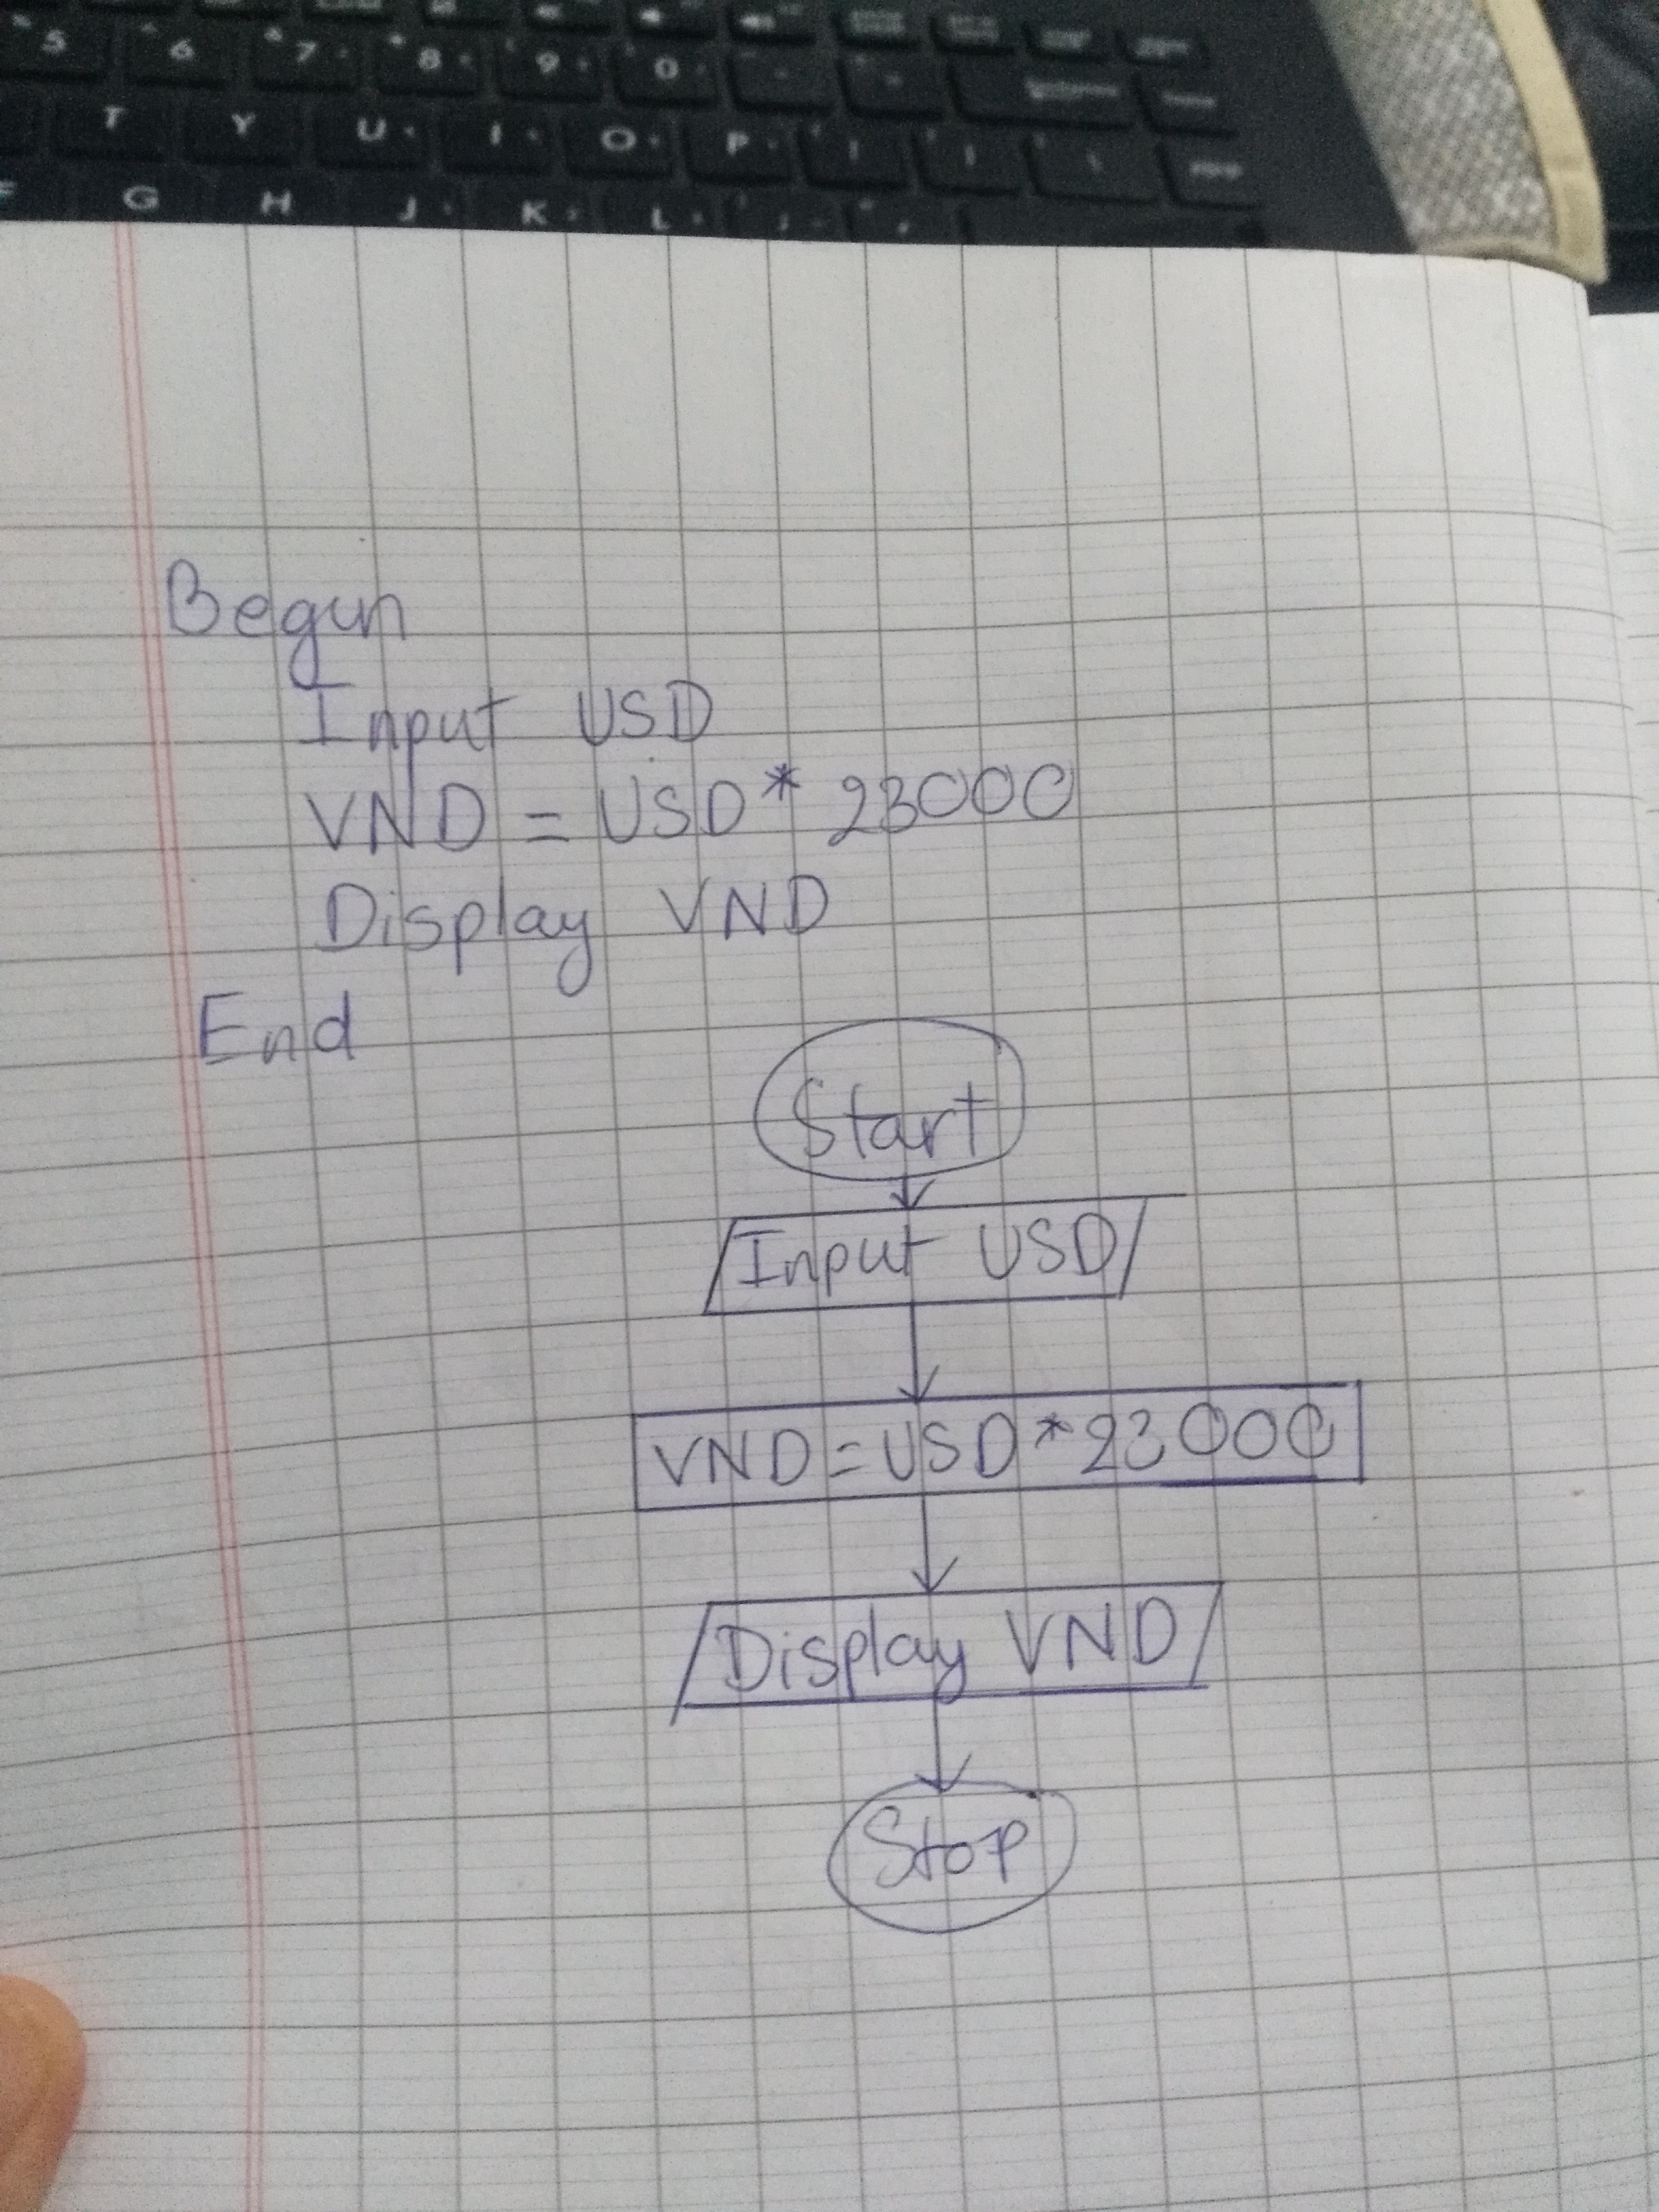 5 6 7 8 9 0
T Y U I O P
G H J K L
Begin
Input USD
VND = USD * 23000
Display VND
End
Start
Input USD
VND = USD * 23000
Display VND
Stop